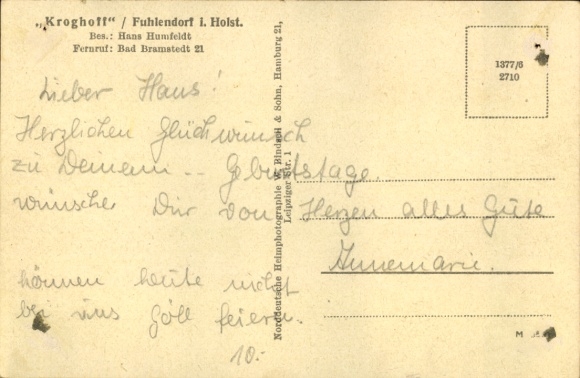 „Kroghoff" / Fuhlendorf i. Holst.
Bes.: Hans Humfeldt
Fernruf: Bad Bramstedt 21
1377/6
2710
Lieber Hans!
Herzlichen Glückwunsch
zu Deinem .. Geburtstage.
wünsche Dir von Herzen alles Gute
Annemarie.
können heute nicht
bei uns feiern.
10.-
Norddeutsche Heimphotographie W. & Sohn, Hamburg 21,
Leipziger Str. 1
M